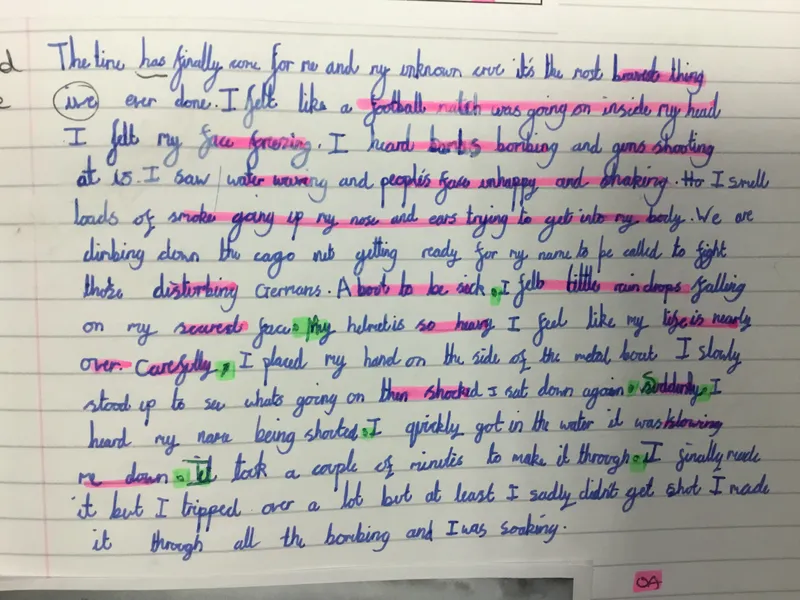 d
The time has finally come for me and my unknown crue it's the most bravest thing
e
ive ever done. I felt like a football match was going on inside my head
I felt my face freezing. I heard bombs bombing and guns shooting
at us. I saw water waving and people's face unhappy and shaking. I smell
loads of smoke going up my nose and ears trying to get into my body. We are
climbing down the cago net getting ready for my name to be called to fight
those disturbing Germans. About to be sick. I felt little rain drops falling
on my scared face. My helmet is so heavy I feel like my life is nearly
over. Carefully, I placed my hand on the side of the metal boat I slowly
stood up to see whats going on then shocked I sat down again. Suddenly, I
heard my name being shouted. I quickly got in the water it was slowing
me down. It took a couple of minutes to make it through. I finally made
it but I tripped over a lot but at least I sadly didn't get shot I made
it through all the bombing and I was soaking.
OA